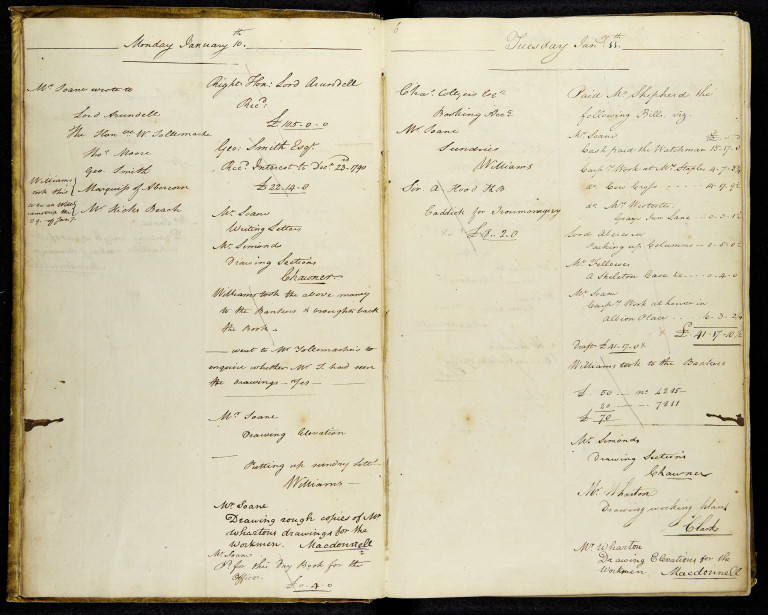 Monday January 10.th
Mr Soane wrote to
Lord Arundell
The Hon.ble W Tollemache
Tho.s Moore
Geo. Smith
Marquiss of Abercorn
Mr Hicks Beach
Williams
took this
Right Hon: Lord Arundell
Rec.d
£105-0-0
Geo: Smith Esq.r
Rec.d Interest to Dec.r 25.th 1790
£22.14.0
Mr Soane
Writing Letters
Mr Simonds
Drawing Sections
Chawner
Williams took the above money
to the Bankers & brought back
the Book
went to Mr Tollemache's to
enquire whether Mr T had seen
the drawings - Yes
Mr Soane
Drawing Elevation
Putting up sundry
Williams
Mr Soane
Drawing rough copies of Mr
Whartons drawings for the
Workmen. Macdonnell
Mr Soane
P.d for this Day Book for the
Office.
£0.4.0
6
Tuesday Jan.y 11.th
Cha.s Collyers Esq.r
Banking Acc.t
Mr Soane
Sundries
Williams
Sir A Hood KB
Caddick for Ironmongery
2.0
Paid Mr Shepherd the
following Bills. viz.
Mr Soane
Cash paid the Watchman 15.17.0
Carp.rs Work at Mr Staples 4.7.
do Cow Cross
do Mr
Grays Inn Lane 0.3.
Lord Abercorn
Packing up Columns 0.5.
Mr Fellowes
A Skeleton Case &c 0.4.0
Mr Soane
Carp.rs Work at house in
Albion Place 6.3.
£41.17.10½
Draft £41.17.0
Williams took to the Bankers
£50 no 4215
20 7211
£70
Mr Simonds
Drawing Sections
Chawner
Mr Wharton
Drawing working plans
Clark
Mr Wharton
Drawing Elevations for the
Workmen. Macdonnell